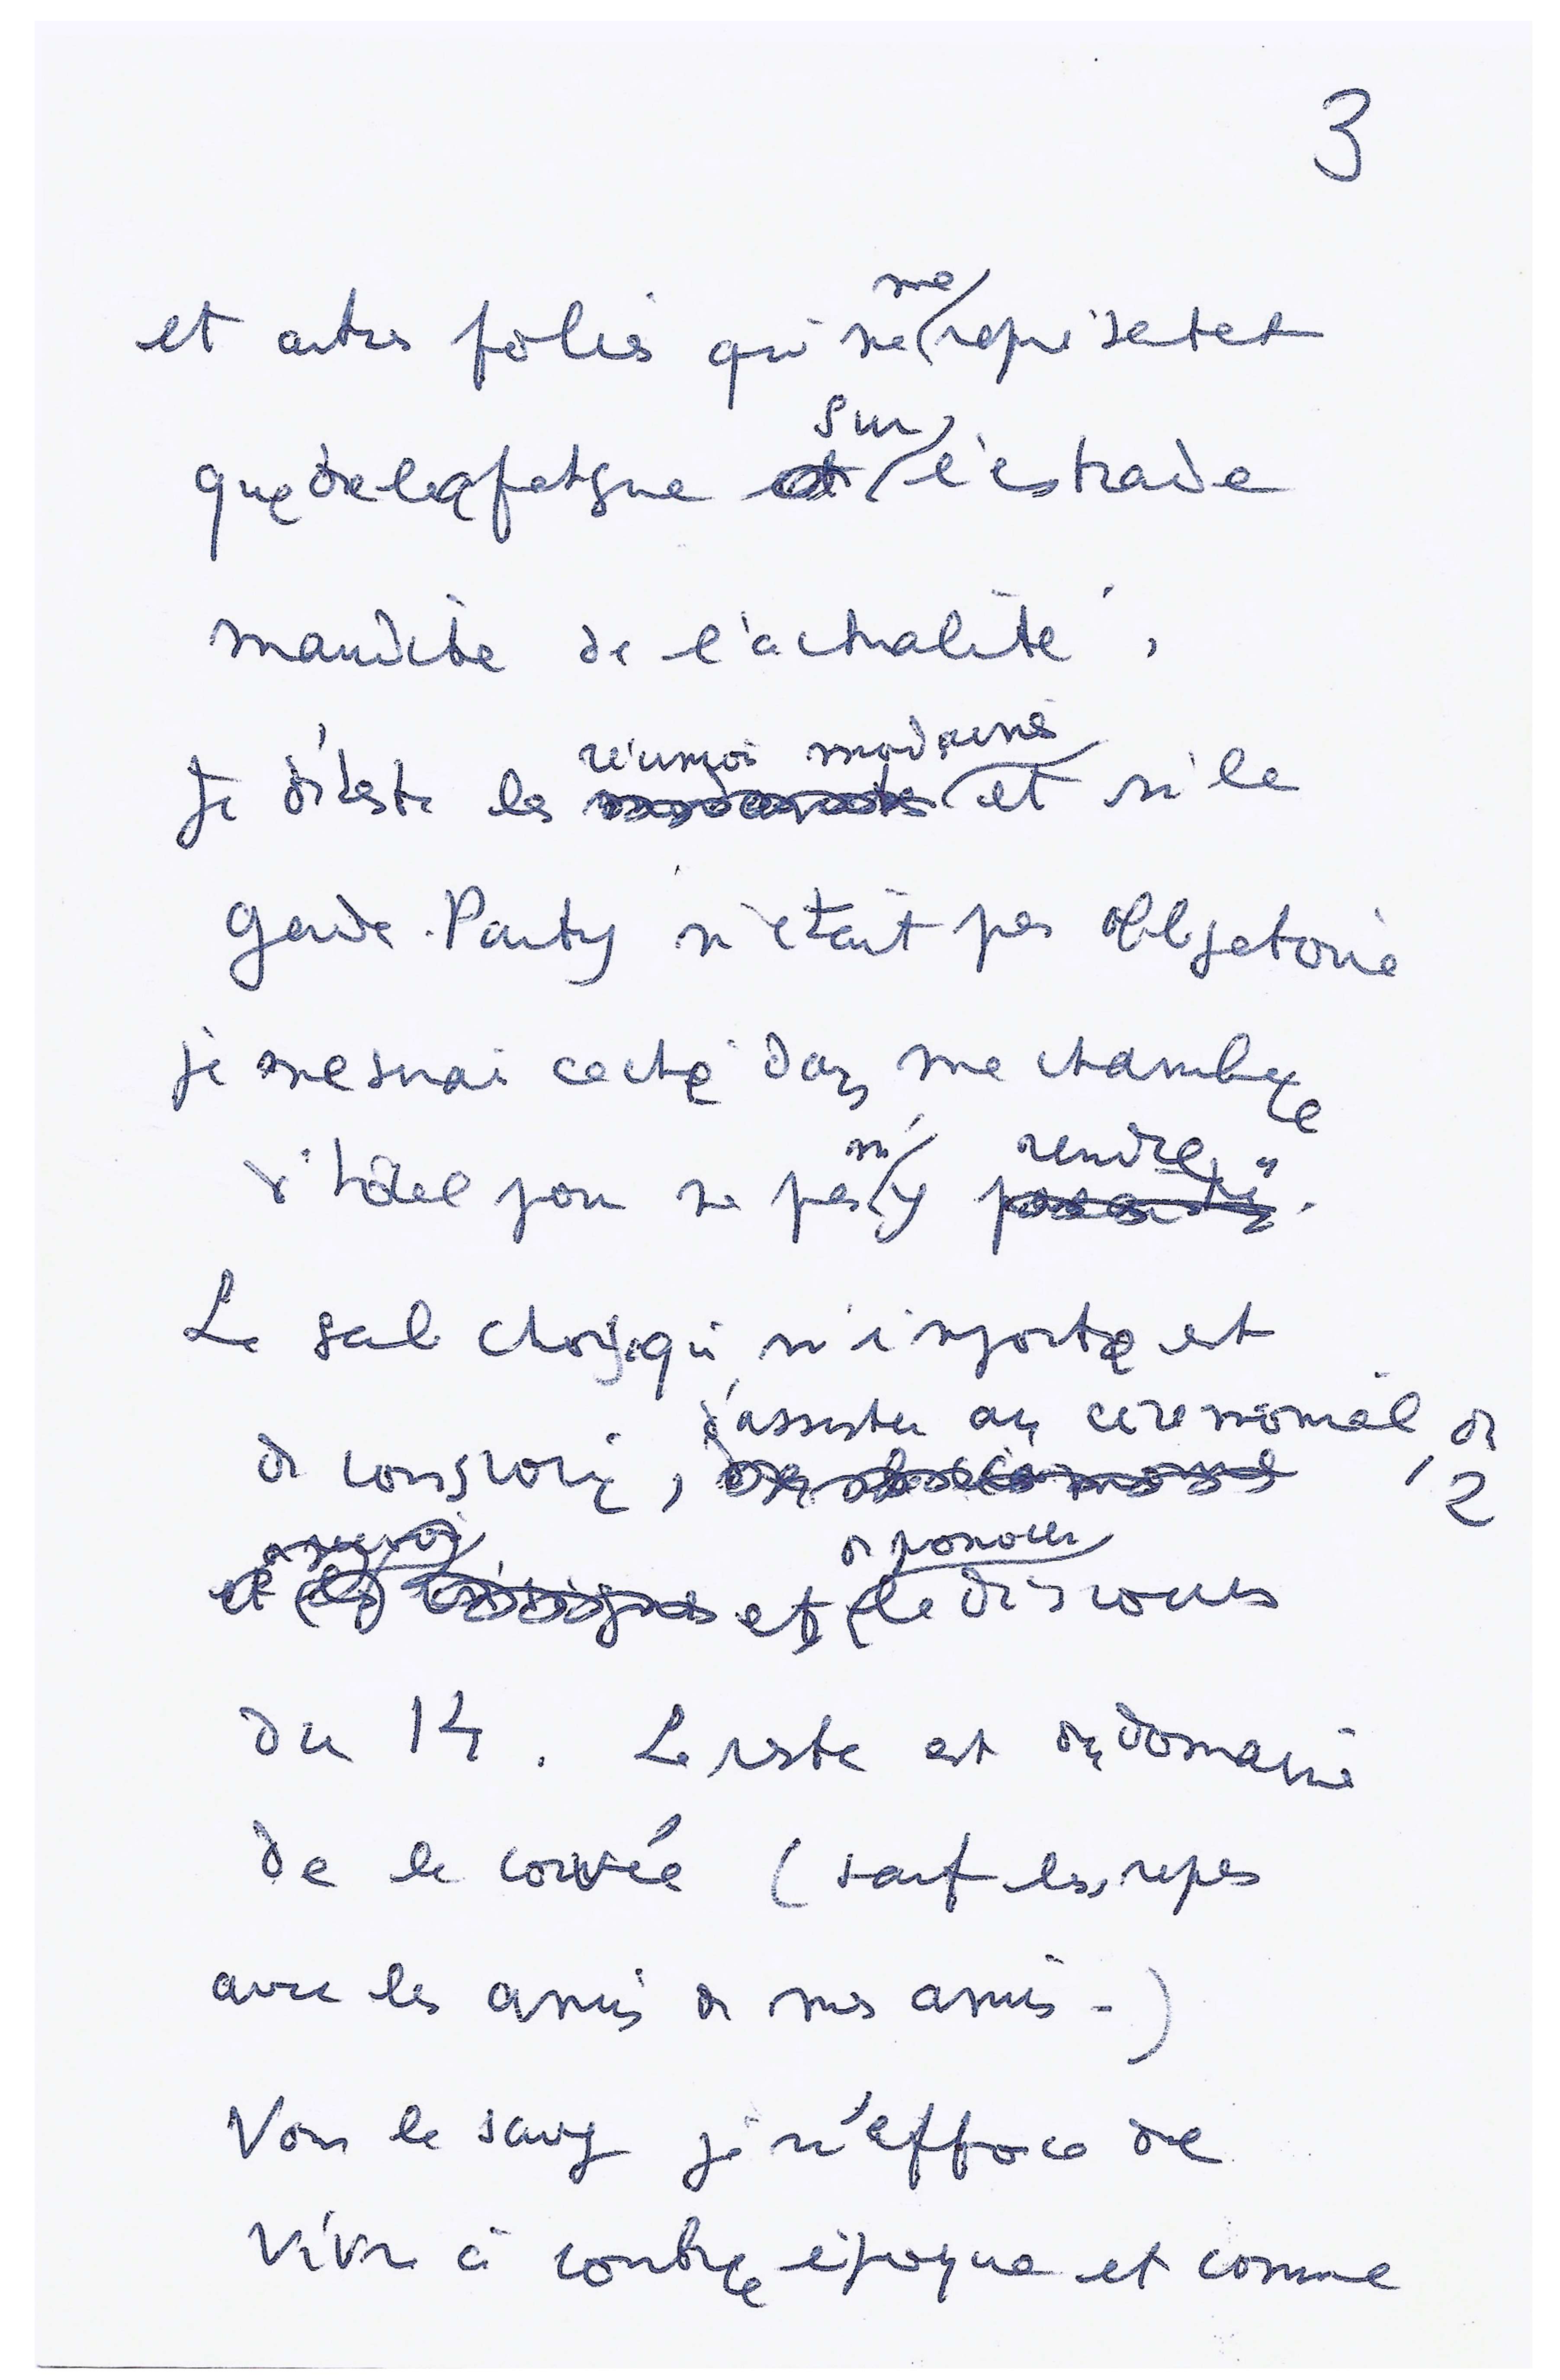 3
et autres folies qui ne me représentent
que de la fatigue sur l'estrade
maudite de l'actualité.
Je déteste les réunions modernes et si le
Garden-Party n'était pas obligatoire
je me serai caché dans ma chambre
d'hôtel pour ne pas m'y rendre.
La seule chose qui m'importe est
de concourir, d'assister au cérémonial de
2
et de prononcer le discours
du 14. Le reste est du domaine
de la corvée (sauf les repas
avec les amis de mes amis-)
Vous le savez je m'efforce de
vivre à contre époque et comme